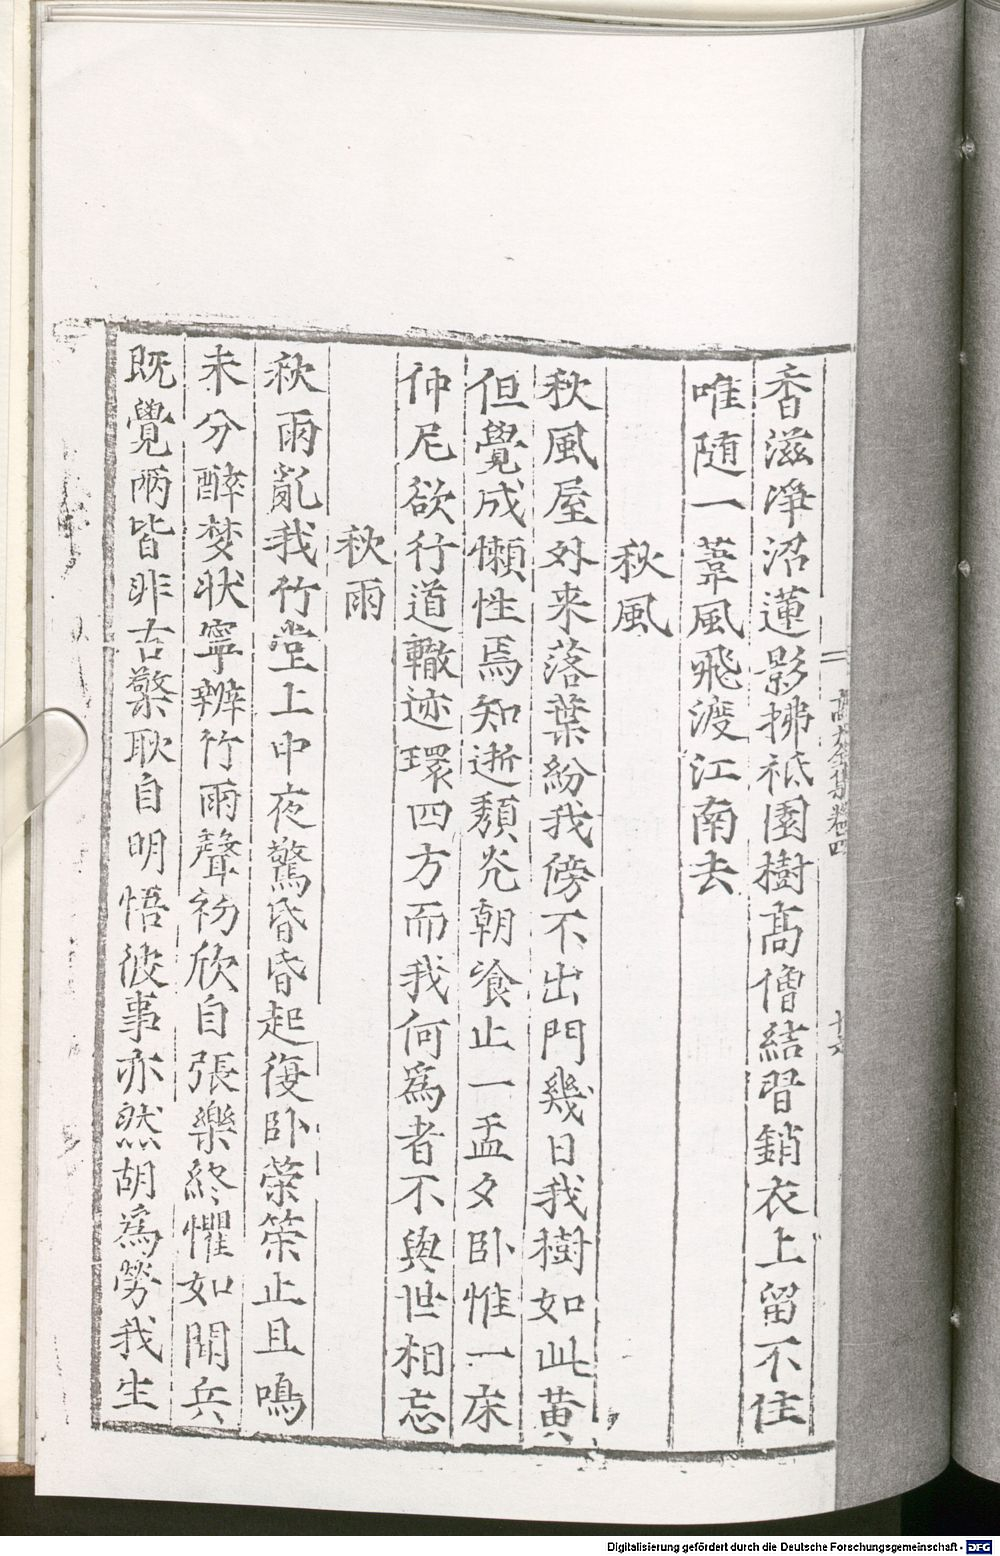 香滋淨沼蓮影拂祗園樹髙僧結習銷衣上留不住
唯随一葦風飛渡江南去
秋風
秋風屋外来落葉紛我傍不出門幾日我樹如此黄
但覺成懶性焉知逝頽光朝飡止一盂夕卧惟一床
仲尼欲行道轍迹環四方而我何爲者不與世相忘
秋雨
秋雨亂我竹堂上中夜驚昏昏起復卧縈榮止且鳴
未分醉梦状寧辨竹雨聲初欣自張樂終懼如聞兵
既覺兩皆非古檠耿自明悟彼事亦然胡爲勞我生
髙太全集卷四
Digitalisierung gefördert durch die Deutsche Forschungsgemeinschaft - DFG